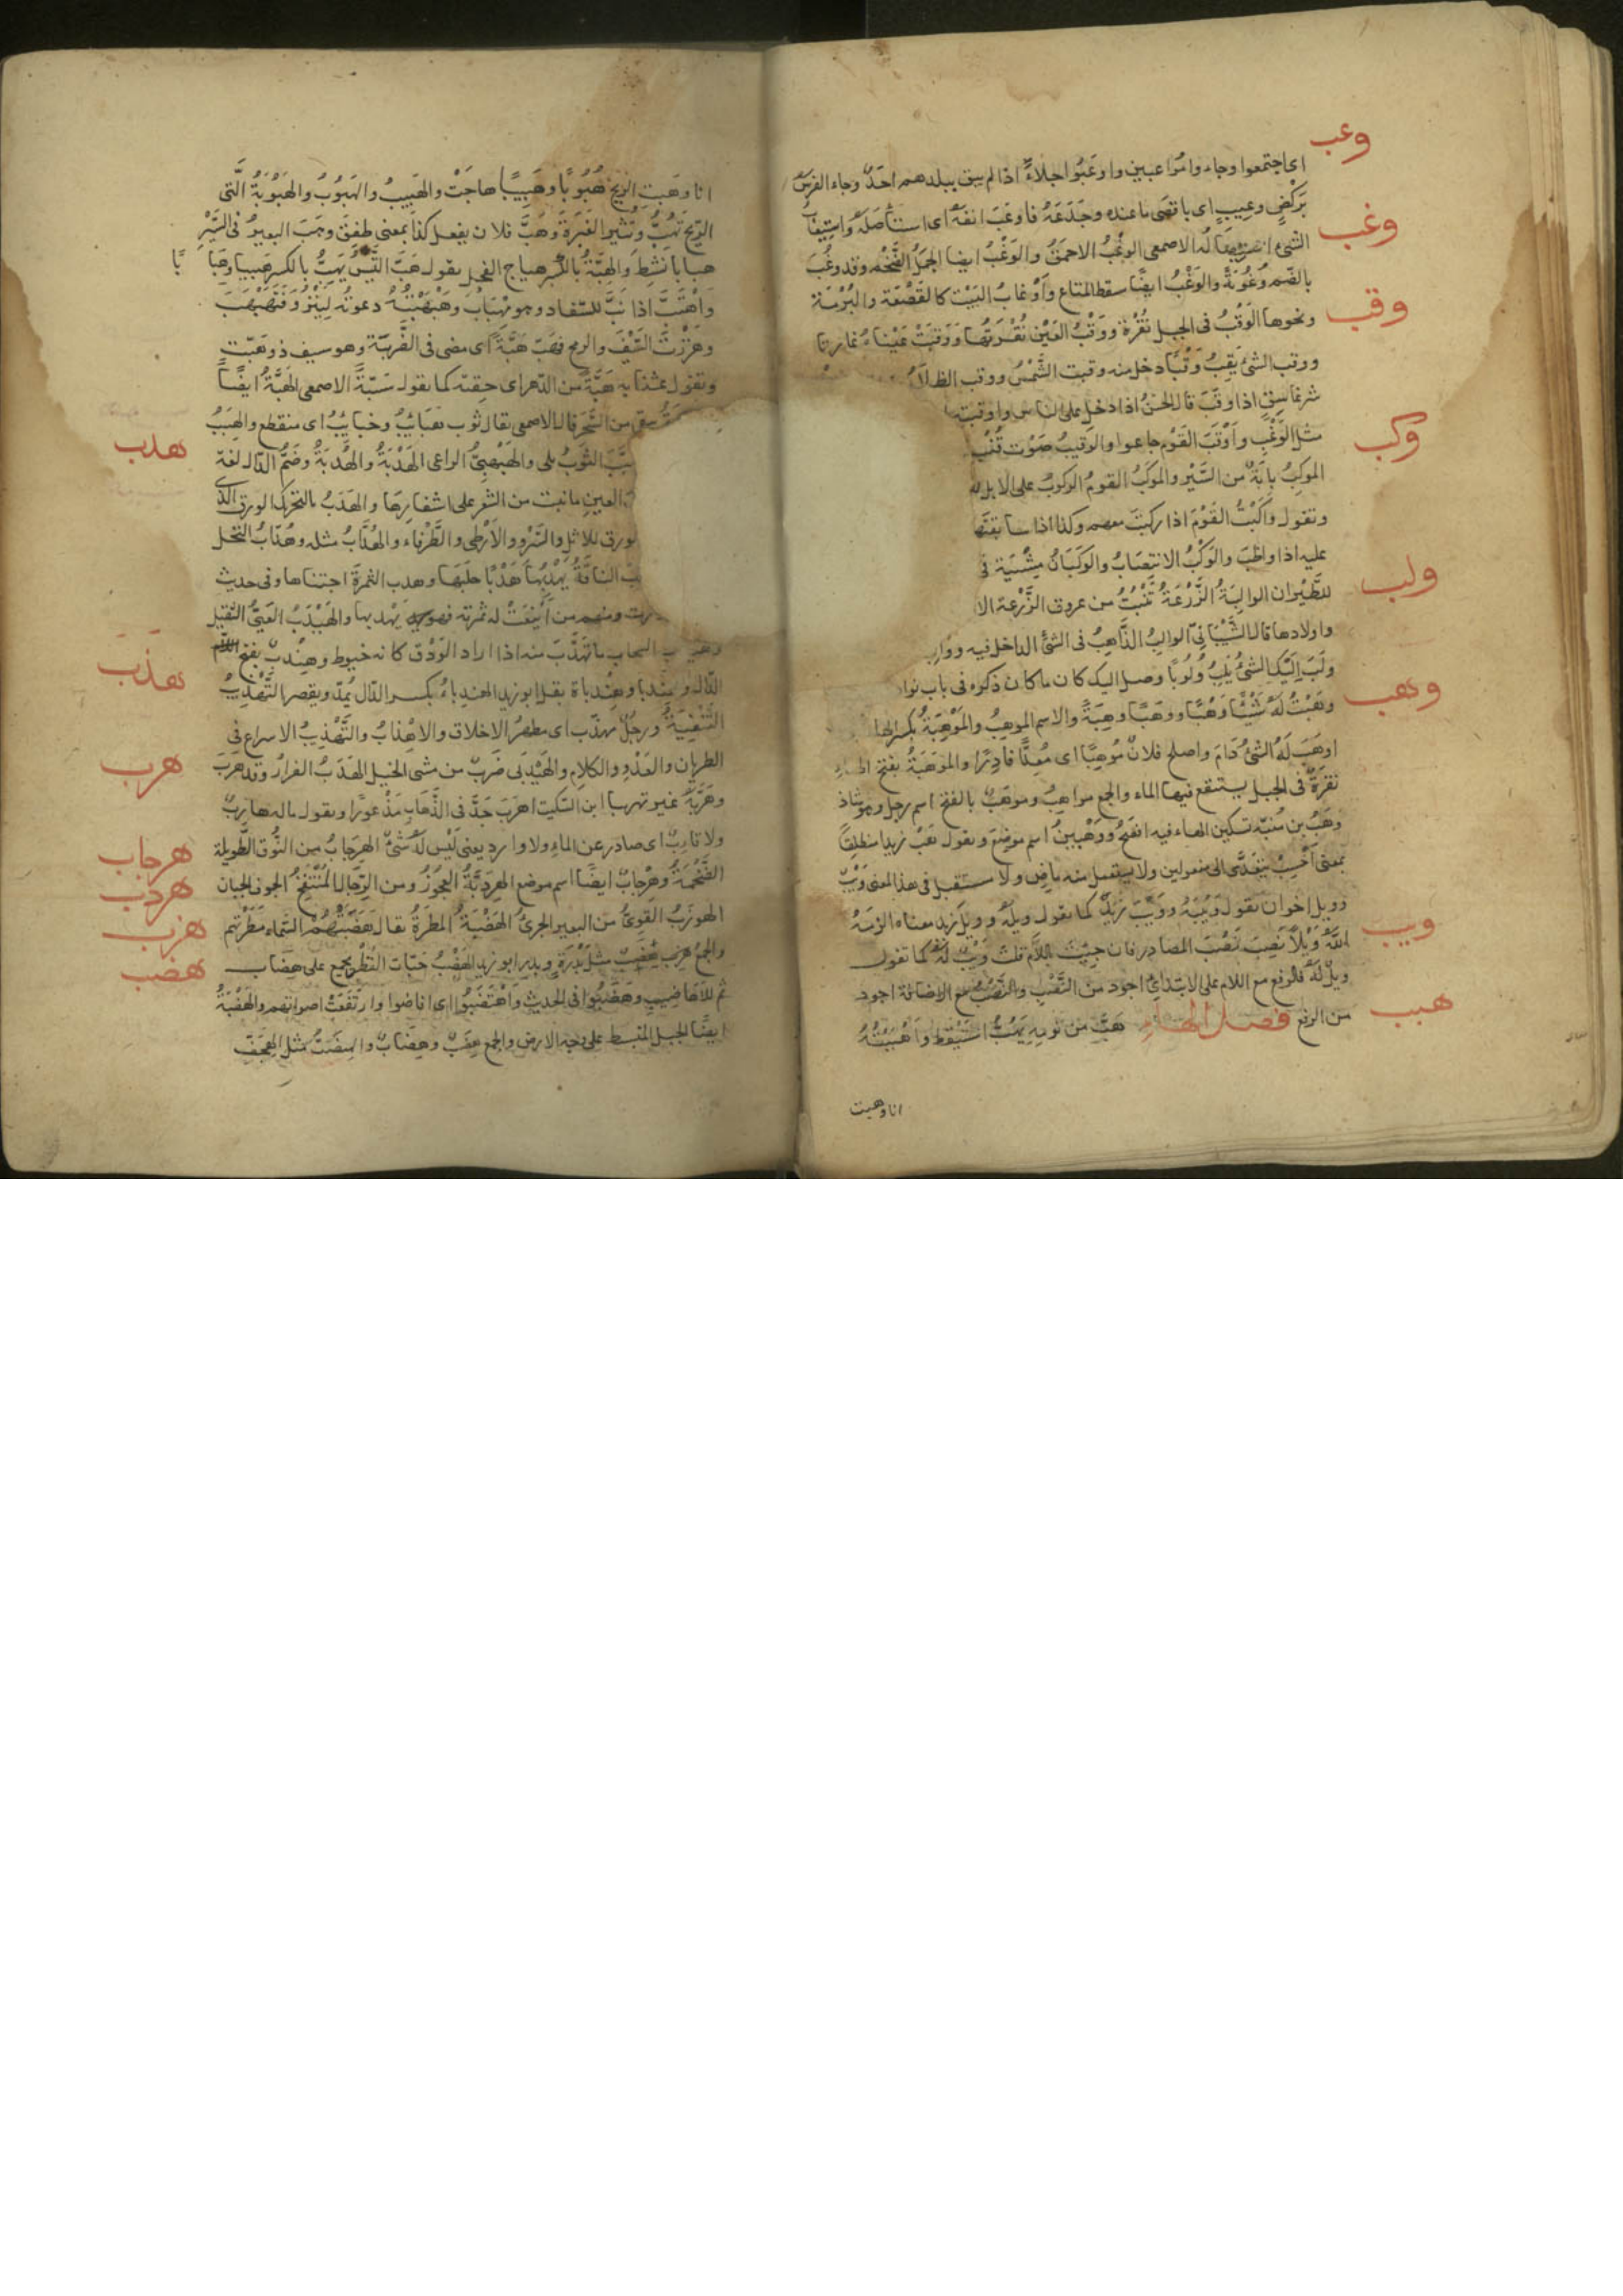 وعب
اى اجتمعوا وجاءوا موعبين واوعبوا جلاءً اذا لم يبق ببلدهم احد وجاء الفرس
بركض وعيب اى باقصى ما عنده وجدعه فاوعب انفه اى استأصله واستيعاب
وغب
الشىء الاصمعى الوغب الاحمق والوغب ايضا الجمل الضخم وقد وغب
بالضم وغوبة والوغب ايضا سقط المتاع واوغاب البيت كالقصعة والبرمة
وقب
ونحوها الوقب فى الجبل نقرة ووقب العين نقرتها ووقبت عيناه غارتا
ووقب الشئ يقب وقبا دخل منه وقبت الشمس ووقب الظلام
شر غاسق اذا وقب قال الحسن اذا دخل على الناس واوقبت
مثل الوغب واوقب القوم جاعوا والوقيب صوت قنب
وكب
الموكب بابة من السير والموكب القوم الركوب على الابل
وتقول واكبت القوم اذا ركبت معهم وكذا اذا سابقتهم
عليه اذا واظب والوكب الانتصاب والوكبان مشية فى
ولب
للظبى ان الوالبة الزرعة تنبت من عروق الزرعة الا
واولادها قال الشيبانى الوالب الذاهب فى الشئ الداخل فيه
ولب اليك الشئ يلب ولوبا وصل اليك كائنا ما كان ذكره فى باب نوا
وهب
وهبت له شيئا وهبا ووهبا وهبة والاسم الموهب والموهبة بكسر الها
اوهب له الشئ دام واصبح فلان موهبا اى معدا قادرا والموهبة بفتح الهاء
نقرة فى الجبل يستنقع فيها الماء والجمع مواهب وموهب بالفتح اسم رجل وهو شاذ
وهب بن منبه تسكين الهاء فيه افصح ووهبين اسم موضع وتقول هب زيدا منطلقا
بمعنى احسب يتعدى الى مفعولين ولا يستعمل منه ماض ولا مستقبل فى هذا المعنى ويب
ويب
وويل اخوان تقول ويبه وويب زيد كما تقول ويله وويل زيد معناه الزمه
الله ويلا نصب نصب المصادر فان جئت باللام قلت ويب له كما تقول
ويل له فالرفع مع اللام على الابتداء اجود من النصب والنصب مع الاضافة اجود
هبب
من الرفع فصل الهاء هب من نومه يهب استيقظ واهببته
انا وهبت
انا وهبت الريح هبوبا وهبيبا هاجت والهبيب والهبوب والهبوبة التى
الريح تهب وتثير الغبرة وهب فلان يفعل كذا بمعنى طفق وهب البعير فى السير
هبابا نشط والهبة بالكسر هياج الفحل تقول هب التيس يهب بالكسر هبيبا وهبا با
واهتب اذا نب للسفاد وهو مهباب وهبهبته دعوته لينزو فتهبهب
وهززت السيف والرمح فهب هبة اى مضى فى الضريبة وهو سيف ذو هبة
وتقول عشنا به هبة من الدهر اى حقبة كما تقول سبة الاصمعى الهبة ايضا
يبقى من السحر قال الاصمعى يقال ثوب هبائب وخبائب اى متقطع والهبب
هدب
الثوب بلى والهبهبى الراعى الهدبة والهدبة وضم الدال لغة
العين ما نبت من الشعر على اشفارها والهدب بالتحريك الورق الذى
لورق للاثل والسرو والارطى والطرفاء والهداب مثله وهداب النخل
الناقة يهدبها هدبا حلبها وهدب الثمرة اجتناها وفى حديث
ومنهم من اينعت له ثمرته فهو يهدبها والهيدب العيى الثقيل
السحاب ما تهدب منه اذا اراد الودق كانه خيوط وهندب بفتح
هذب
الدال وهندبا وهندباة بقل ابو زيد الهندباء بكسر الدال يمد ويقصر التهذيب
التنقية ورجل مهذب اى مطهر الاخلاق والاهذاب والتهذيب الاسراع فى
هرب
الطيران والعدو والكلام والهيدبى ضرب من مشى الخيل الهرب الفرار وقد هرب
وهربه غيره تهريبا ابن السكيت اهرب جد فى الذهاب مذعورا ويقول ماله هارب
هرجاب
ولا قارب اى صادر عن الماء ولا وارد يعنى ليس له شئ الهرجاب من النوق الطويلة
هردب
الضخمة وهرجاب ايضا اسم موضع الهردبة العجوز ومن الرجال المنتفخ الجوف الجبان
هزب
الهوزب القوى من البعير الجرى الهضبة المطرة يقال هضبتهم السماء مطرتهم
هضب
والجمع هضب مثل بدرة وبدر ابو زيد الهضب حبات القطر يجمع على هضاب
ثم الاهاضيب وهضبوا فى الحديث واهتضبوا اى افاضوا وارتفعت اصواتهم والهضبة
ايضا الجبل المنبسط على وجه الارض والجمع هضب وهضاب والهضب مثل الهجف